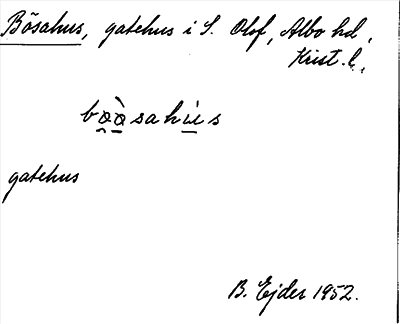 Bösahus, gatehus i S. Olof, Albo hd,
Krist. l.,
bòòsahús
gatehus
B. Ejder 1952.